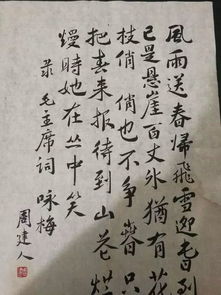 風雨送春歸飛雪迎春到
已是懸崖百丈冰猶有花
枝俏俏也不爭春只
把春来报待到山花爛
熳時她在丛中笑
录毛主席词咏梅
周建人